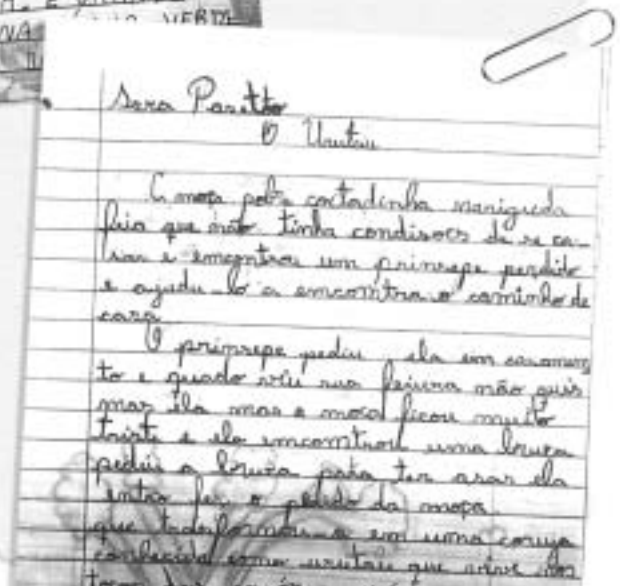 NA VERDE
Sara Paretto
O Urutau
A moça pobre coitadinha nariguda
feia que não tinha condisoes de se ca-
sar e emcontrou um prinsepe perdido
e ajudu-lo a emcontra o caminho de
casa
O prinsepe pediu ela em casamen
to e quado viu sua feiura não quis
mas ela mas a moça ficou muito
triste e ela emcomtrou uma bruxa
pediu a bruxa para ter asas ela
entao fes o pedido da moça.
que trasformou-a em uma coruja
conhecida como urutau que vive nos